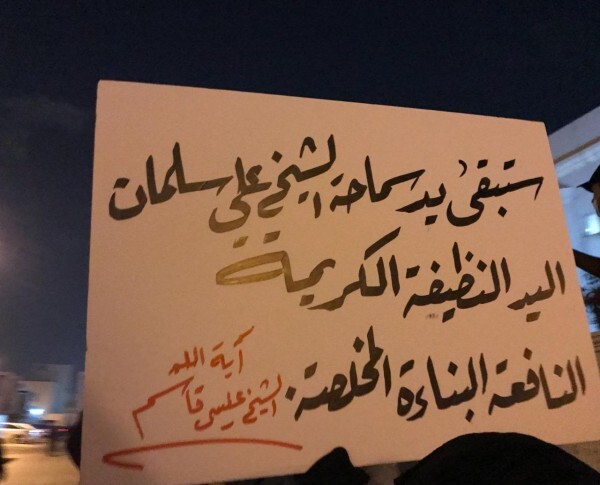 ستبقى يد سماحة الشيخ علي سلمان
اليد النظيفة الكريمة
النافعة البناءة المخلصة.
آية الله
الشيخ عيسى قاسم